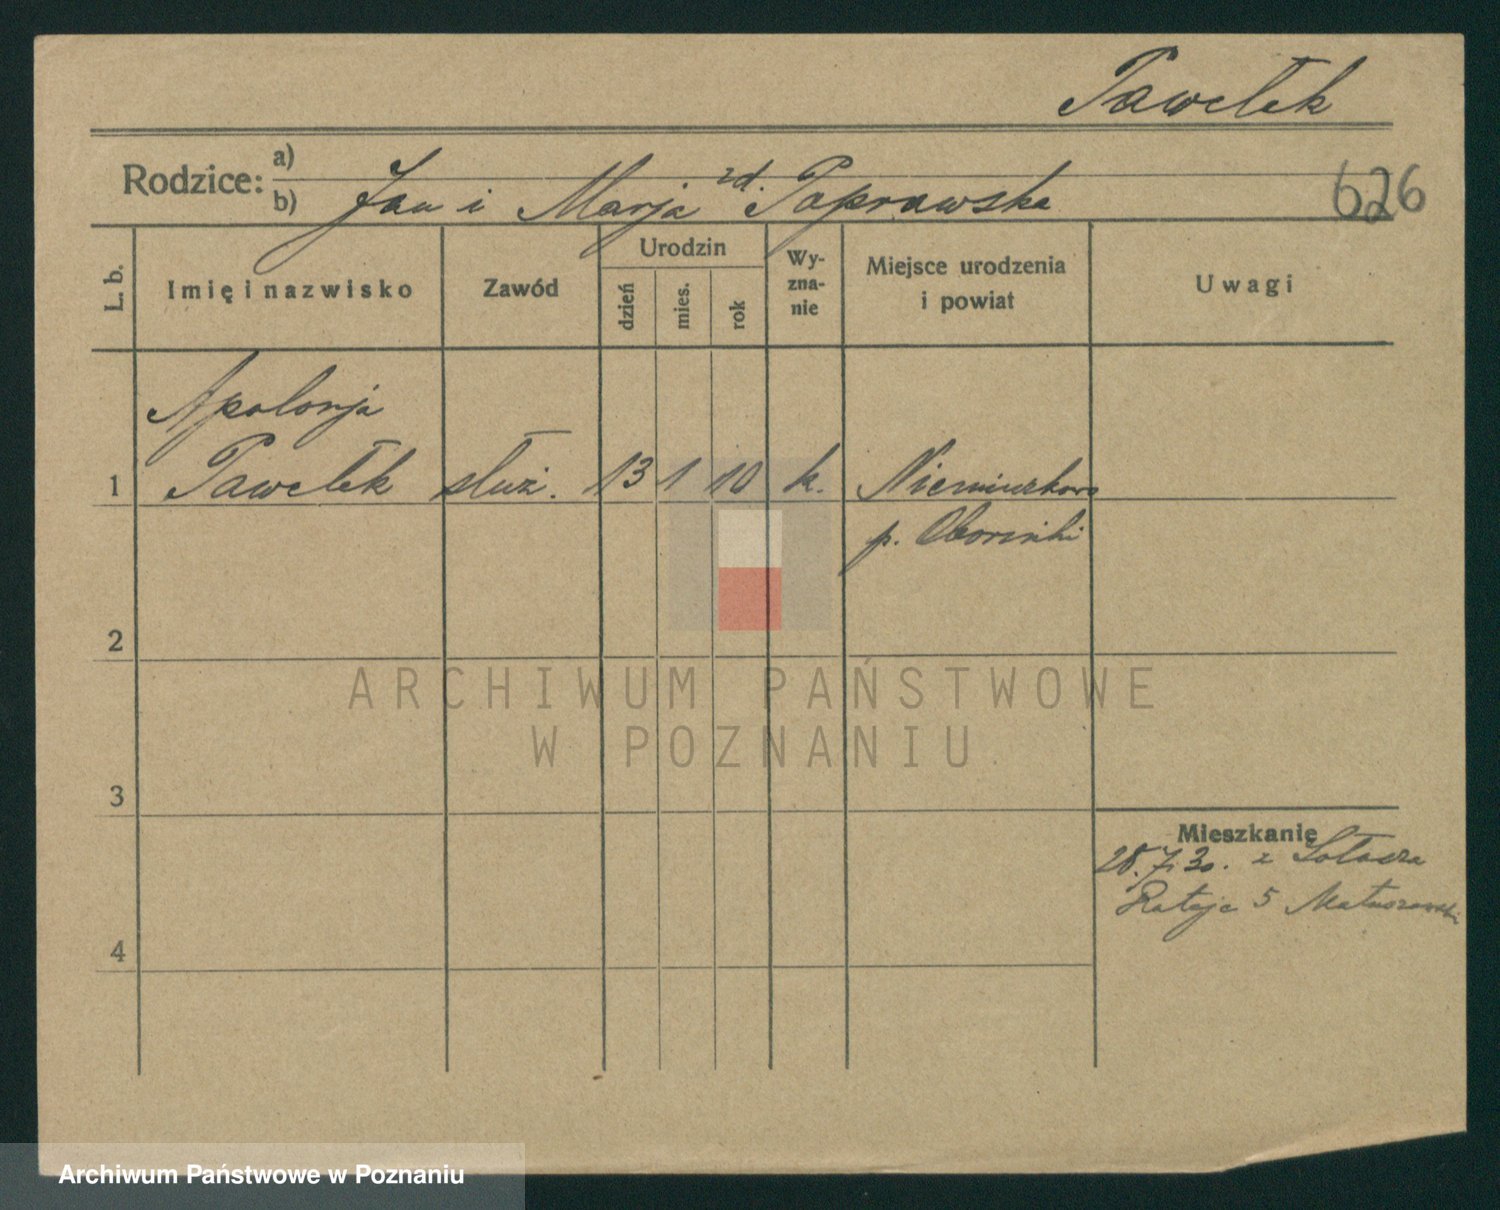 Pawełek
Rodzice: a)
b) Jan i Marja zd. Poprawska
626
L. b.
Imię i nazwisko
Zawód
Urodzin
dzień
mies.
rok
Wy-
zna-
nie
Miejsce urodzenia
i powiat
Uwagi
Apolonja
1 Pawełek służ. 13 1 10 k. Niemieczkowo
p. Obornicki
2
3
4
Mieszkanie
28.7.30. z Sołacza
Rataje 5 Matuszewski
ARCHIWUM PAŃSTWOWE
W POZNANIU
Archiwum Państwowe w Poznaniu